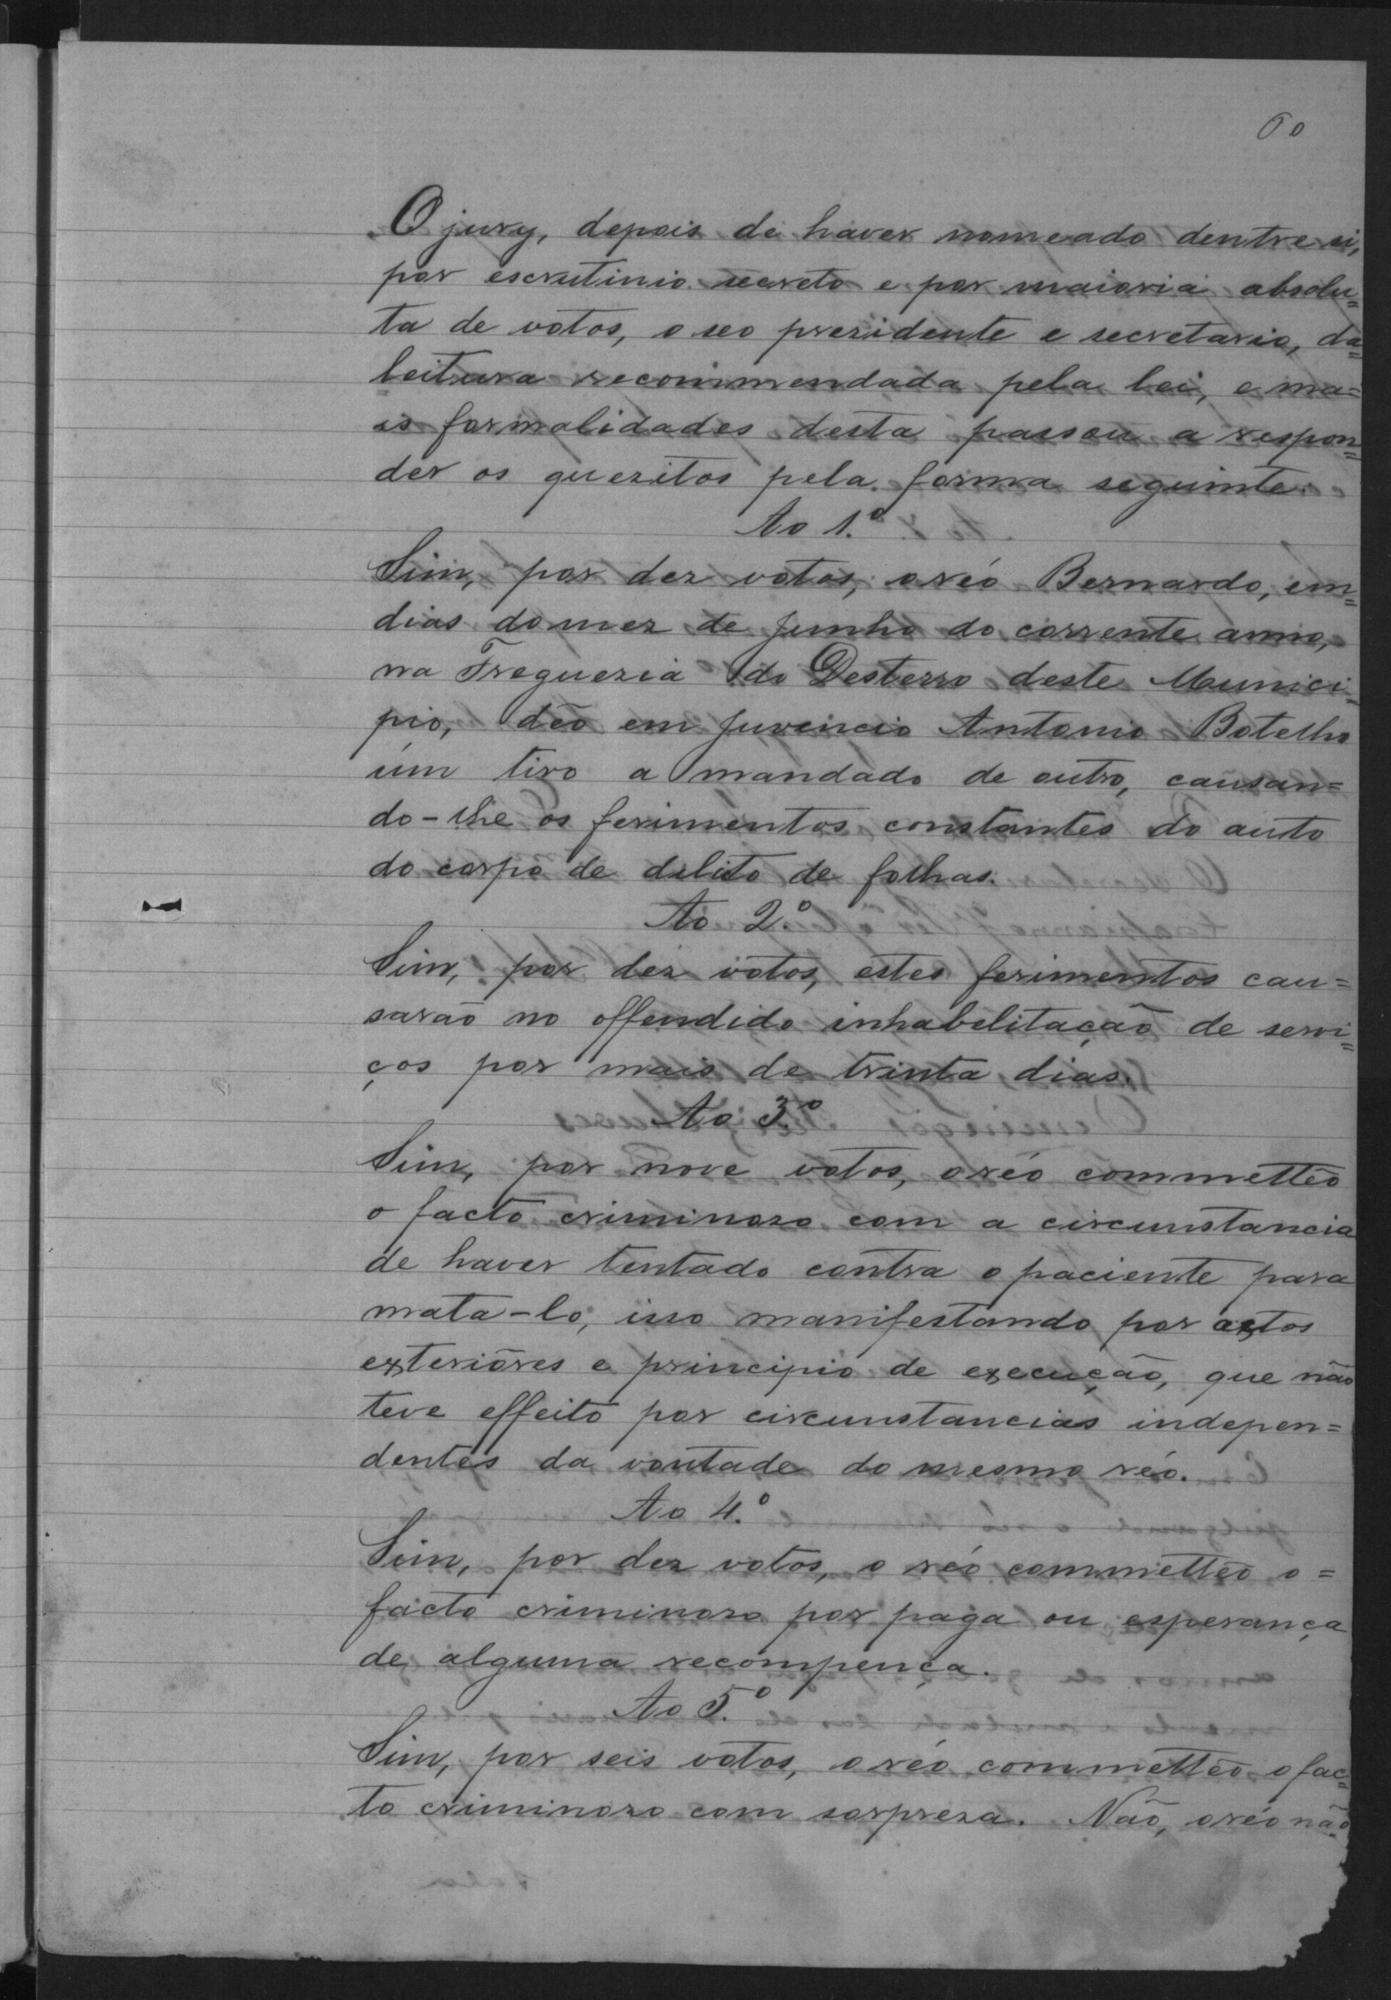 60
O jury, depois de haver nomeado dentre si,
por escrutinio secreto e por maioria absolu=
ta de votos, o seo prezidente e secretario, da=
leitura recommendada pela lei, e ma=
is formalidades desta passou a respon=
der os quezitos pela forma seguinte.
Ao 1.º
Sim, por dez votos, o réo Bernardo, em=
dias do mez de Junho do corrente anno,
na Fregueria do Desterro deste Munici=
pio, dêo em Juvencio Antonio Botelho
úm tiro a mandado de outro, causan=
do-lhe os ferimentos constantes do auto
do corpo de delito de folhas.
Ao 2.º
Sim, por dez votos, estes ferimentos cau=
sarão no offendido inhabelitação de servi=
ços por mais de trinta dias.
Ao 3.º
Sim, por nove votos, o réo commettêo
o facto criminozo com a circunstancia
de haver tentado contra o paciente para
mata-lo, isso manifestando por actos
exteriôres e principio de execução, que não
teve effeito por circunstancias indepen=
dentes da vontade do mesmo réo.
Ao 4.º
Sim, por dez votos, o réo commettêo o=
facto criminozo por paga ou esperança
de alguma recompença.
Ao 5.º
Sim, por seis votos, o réo commettêo o fac=
to criminozo com sorpreza. Não, o réo não